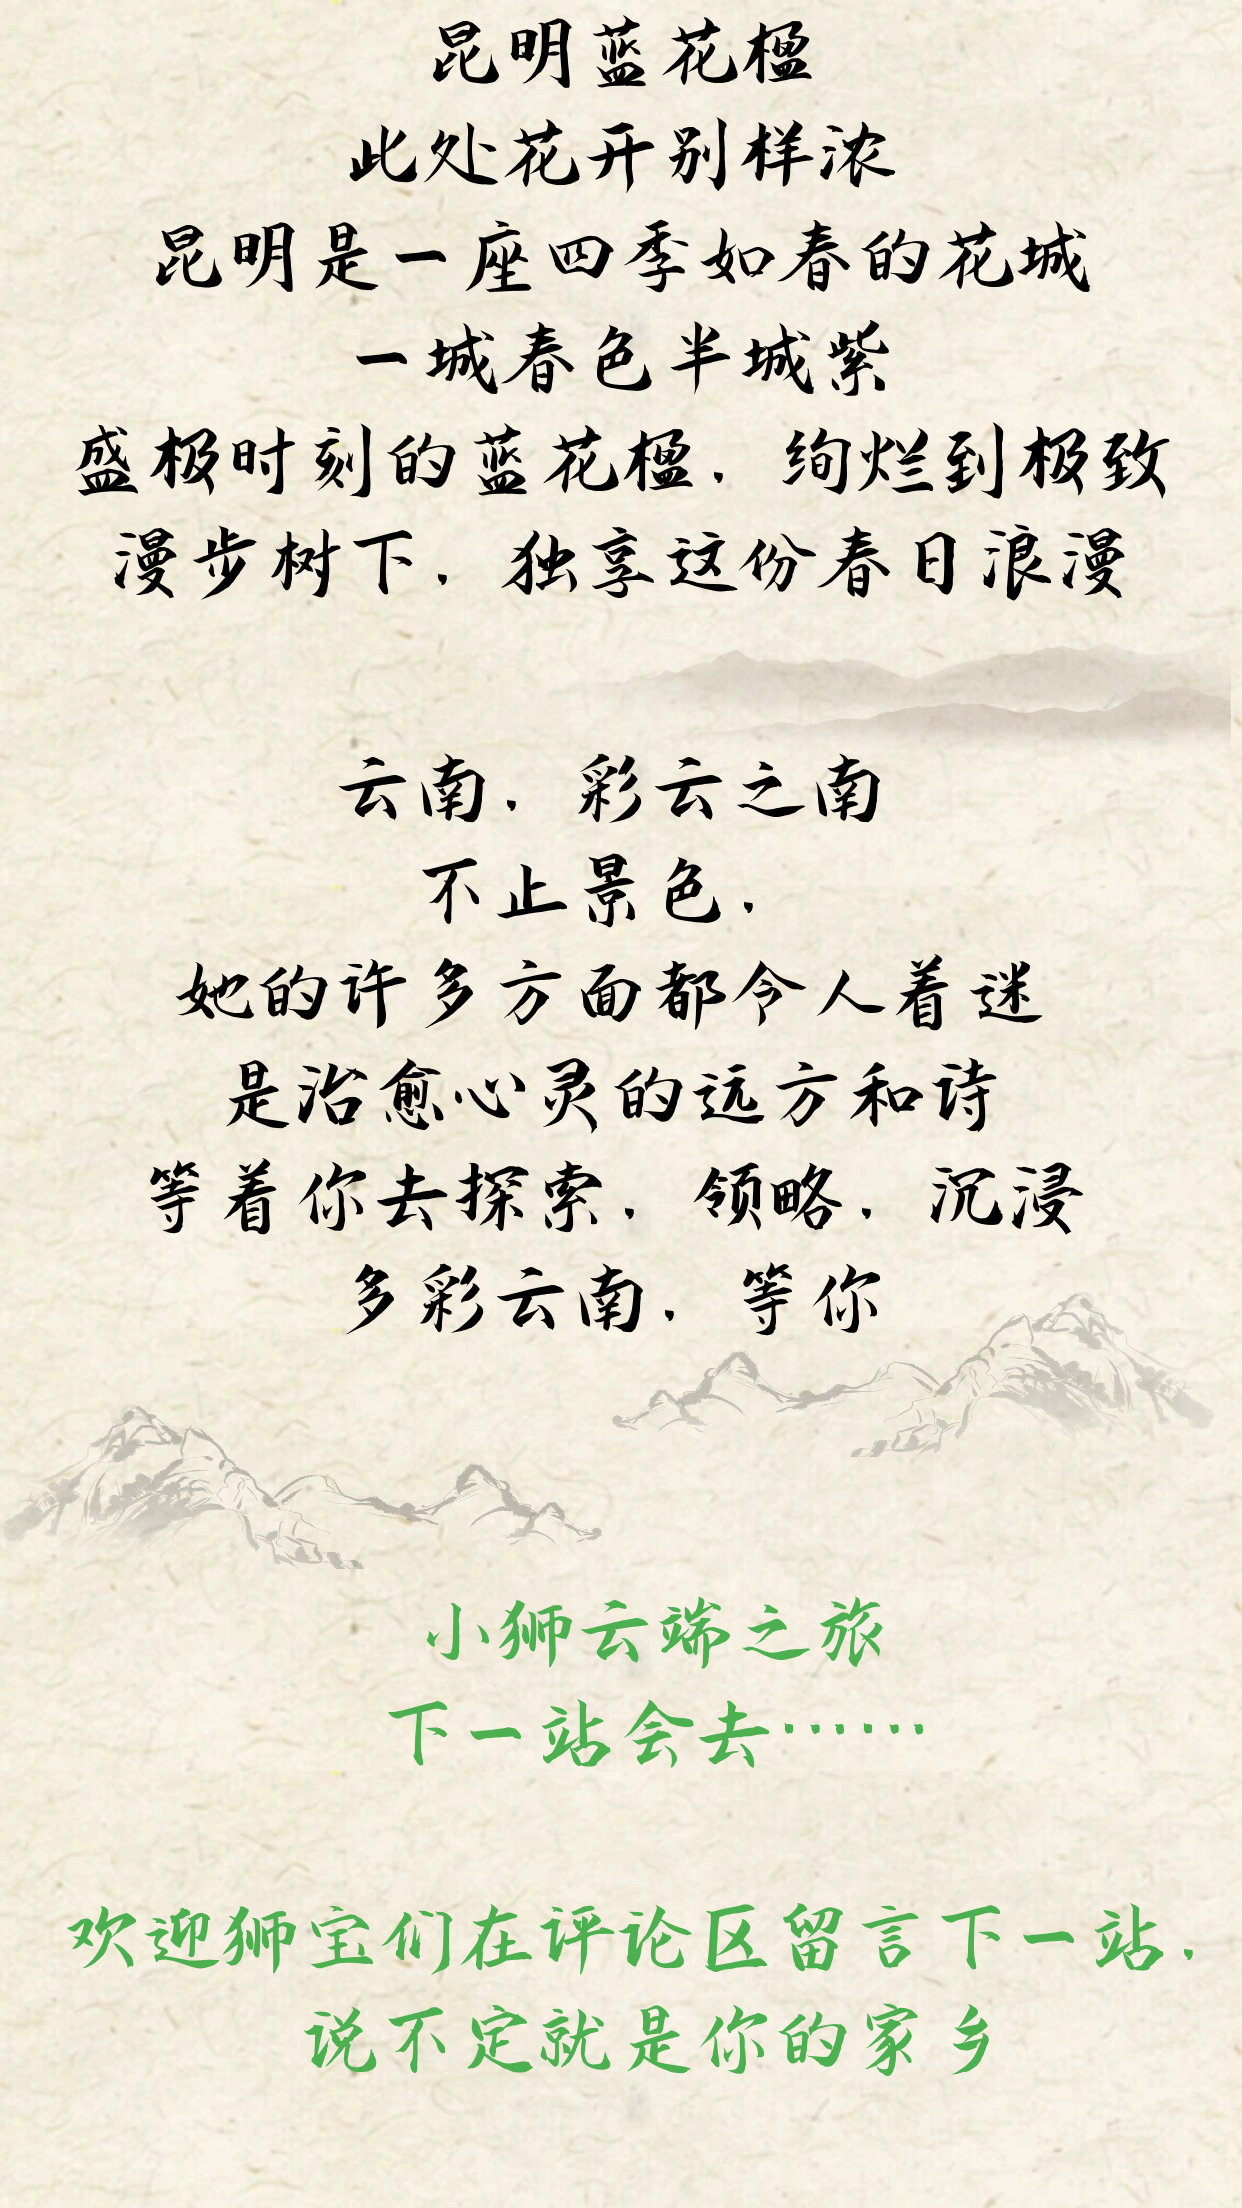 昆明蓝花楹
此处花开别样浓
昆明是一座四季如春的花城
一城春色半城紫
盛极时刻的蓝花楹，绚烂到极致
漫步树下，独享这份春日浪漫
云南，彩云之南
不止景色，
她的许多方面都令人着迷
是治愈心灵的远方和诗
等着你去探索，领略，沉浸
多彩云南，等你
小狮云端之旅
下一站会去……
欢迎狮宝们在评论区留言下一站，
说不定就是你的家乡